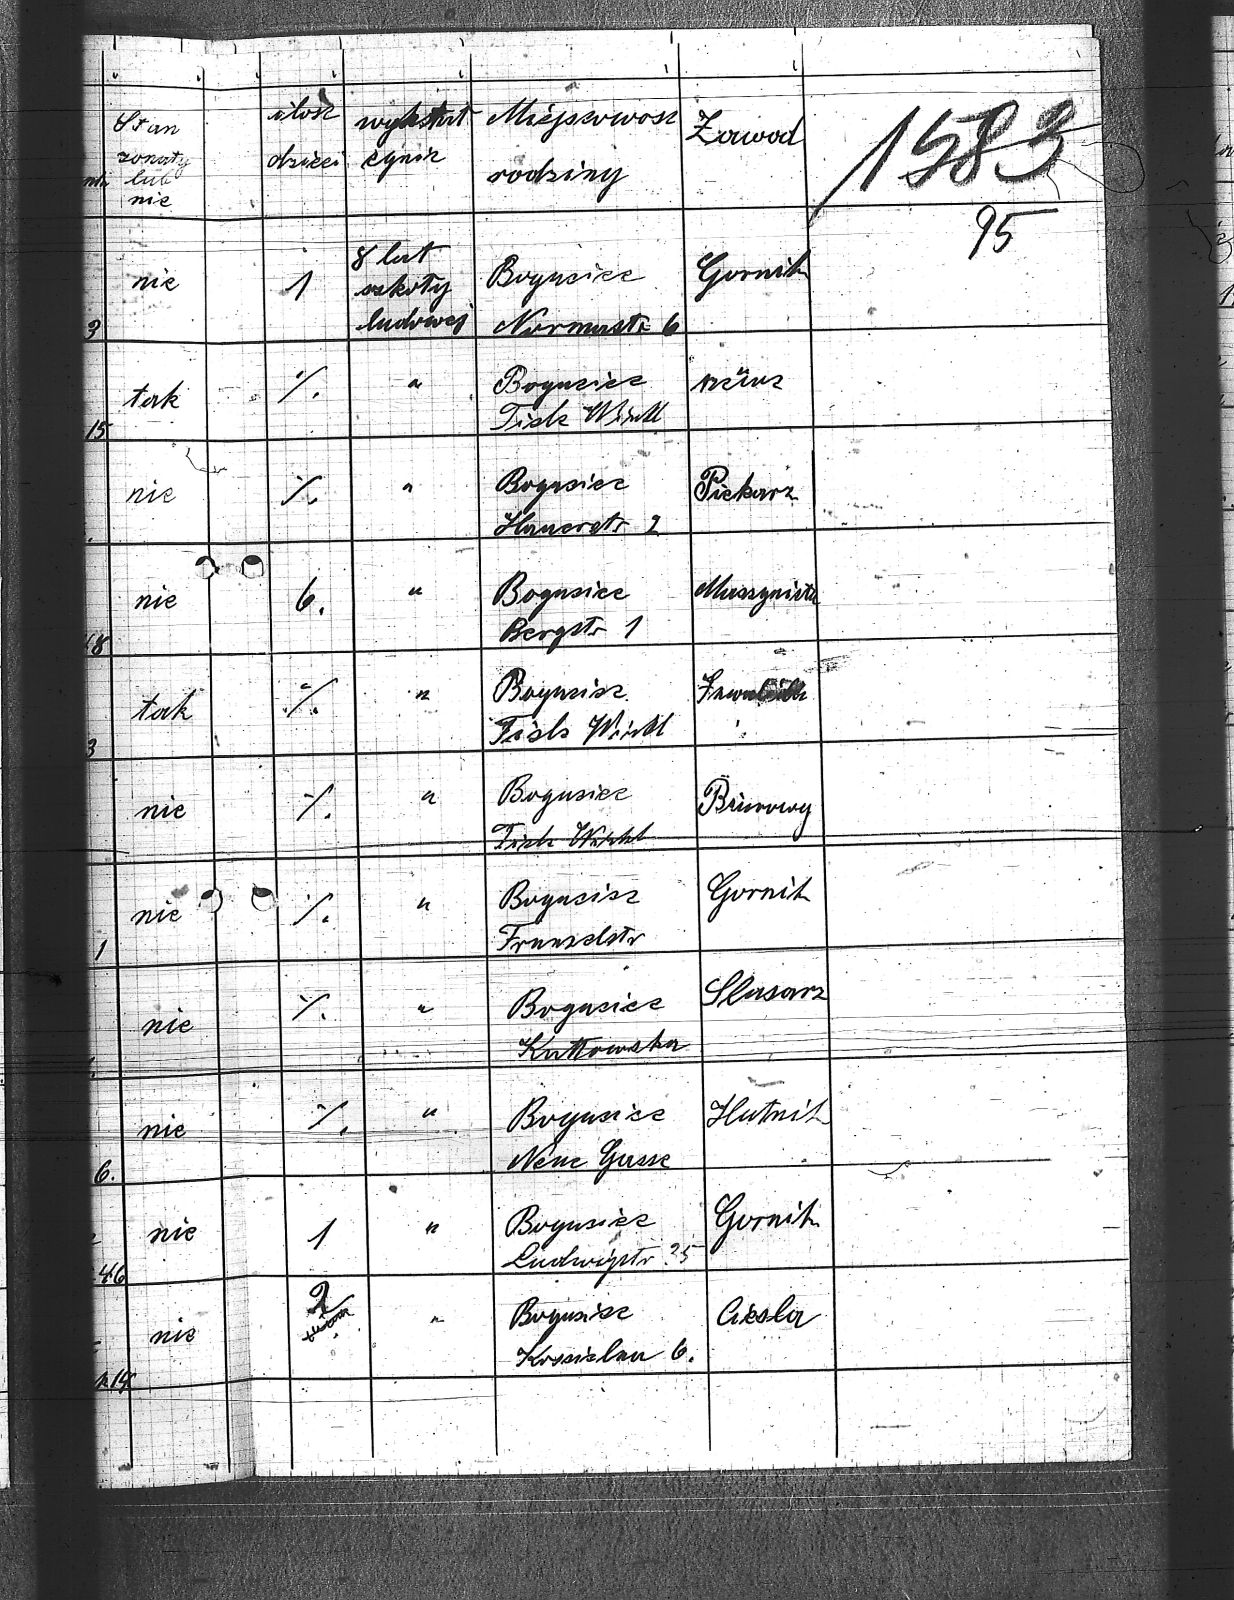 Stan
żonaty
lub
nie
ilosz
dzieci
wykstat
cynie
Miejscowosz
rodziny
Zawod
1583
95
nie
1
8 lat
szkoły
ludowej
Bogusice
Normastr 6
Gornik
3
tak
%.
"
Bogusice
Tiele Winkl
15
nie
%.
"
Bogusice
Hauerstr 2
Piekarz
nie
6.
"
Bogusice
Bergstr 1
Maszynista
18
tak
%.
"
Bogusice
Tiele Winkl
3
nie
%.
"
Bogusice
Tiele Winkl
Biurowy
nie
%.
"
Bogusice
Franzelstr
Gornik
1
nie
%.
"
Bogusice
Kattowska
Slusarz
nie
%.
"
Bogusice
Neue Gasse
Hutnik
6.
nie
1
"
Bogusice
Ludwigstr 25
Gornik
46
nie
2
"
Bogusice
6.
Ciesla